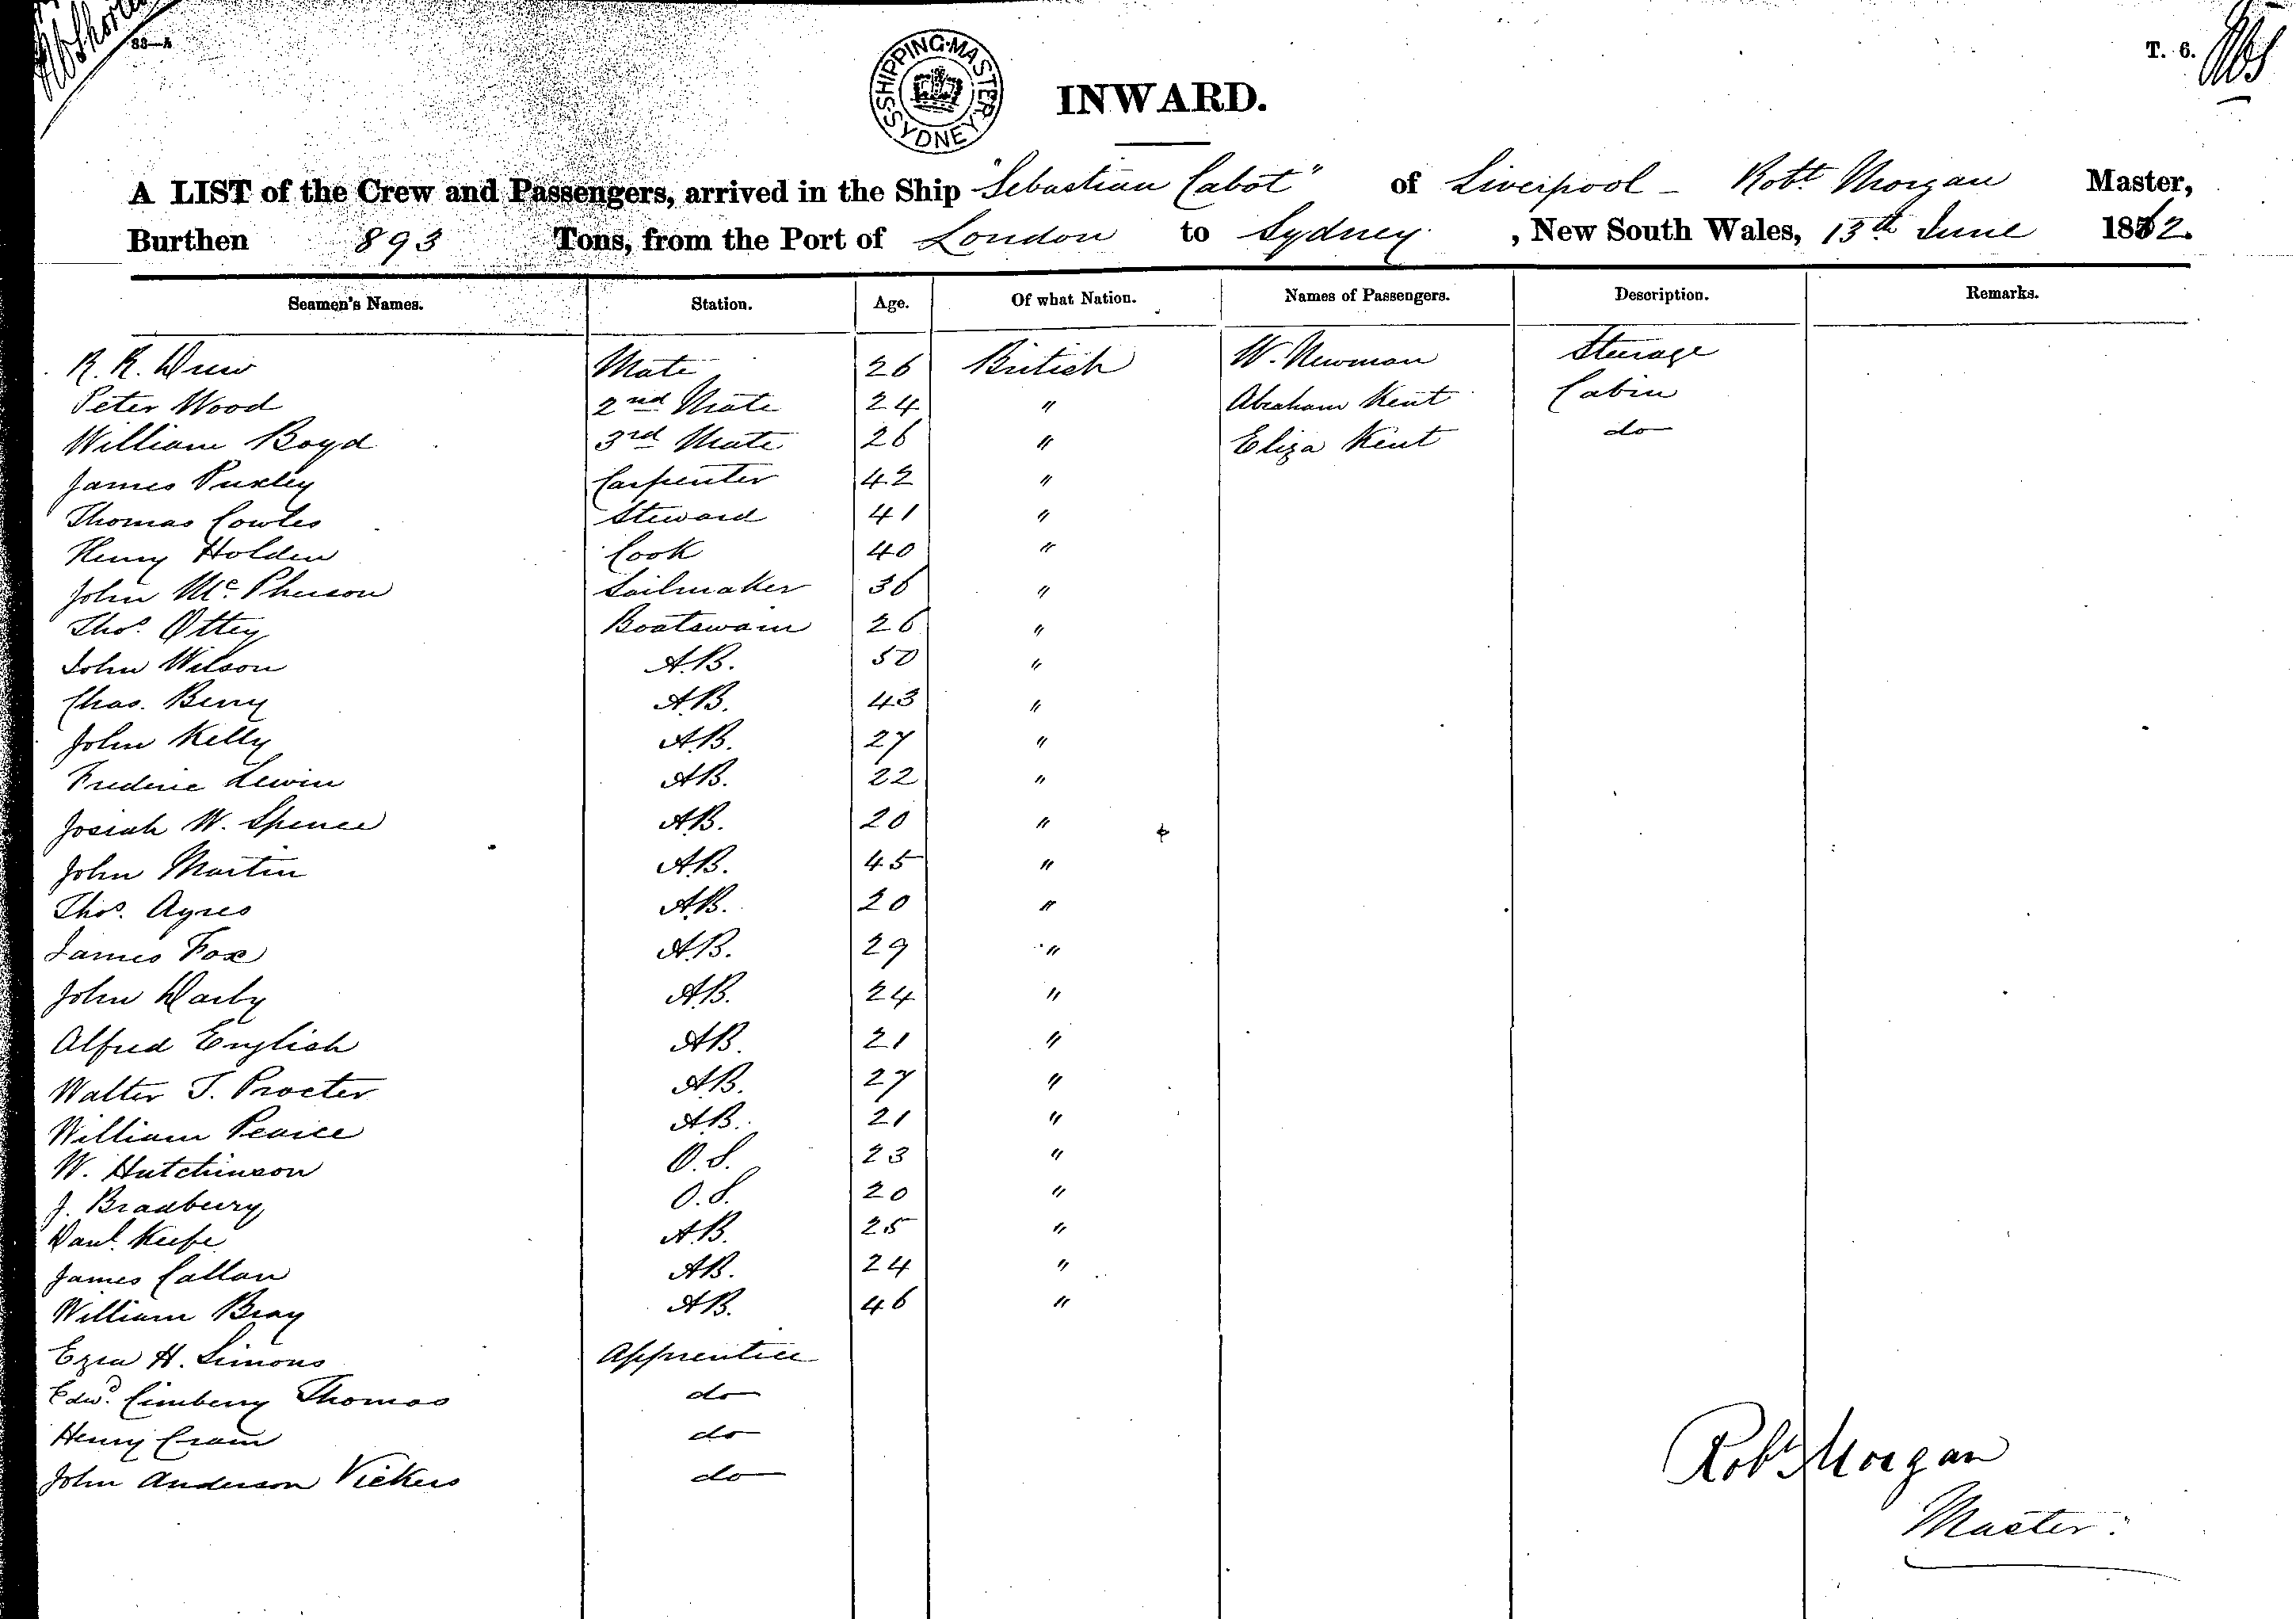 83—A
T. 6.
SHIPPING MASTER SYDNEY
INWARD.
A LIST of the Crew and Passengers, arrived in the Ship "Sebastian Cabot" of Liverpool – Robt. Morgan Master,
Burthen 893 Tons, from the Port of London to Sydney, New South Wales, 13th June 1882.
Seamen's Names. Station. Age. Of what Nation. Names of Passengers. Description. Remarks.
R. R. Drew Mate 26 British W. Newman Steerage
Peter Wood 2nd Mate 24 " Abraham Kent Cabin
William Boyd 3rd Mate 26 " Eliza Kent do
James Puxley Carpenter 42 "
Thomas Cowles Steward 41 "
Henry Holden Cook 40 "
John McPherson Sailmaker 36 "
Thos. Ottey Boatswain 26 "
John Wilson A.B. 50 "
Chas. Berry A.B. 43 "
John Kelly A.B. 27 "
Frederic Lewin A.B. 22 "
Josiah W. Spence A.B. 20 "
John Martin A.B. 45 "
Thos. Ayres A.B. 20 "
James Fox A.B. 29 "
John Darby A.B. 24 "
Alfred English A.B. 21 "
Walter T. Procter A.B. 27 "
William Pearce A.B. 21 "
W. Hutchinson O.S. 23 "
J. Bradbury O.S. 20 "
Danl. Keefe A.B. 25 "
James Callan A.B. 24 "
William Bray A.B. 46 "
Ezra H. Simons Apprentice
Edwd. Cimberry Thomas do
Henry Cram do
John Anderson Vickers do
Robt Morgan
Master.